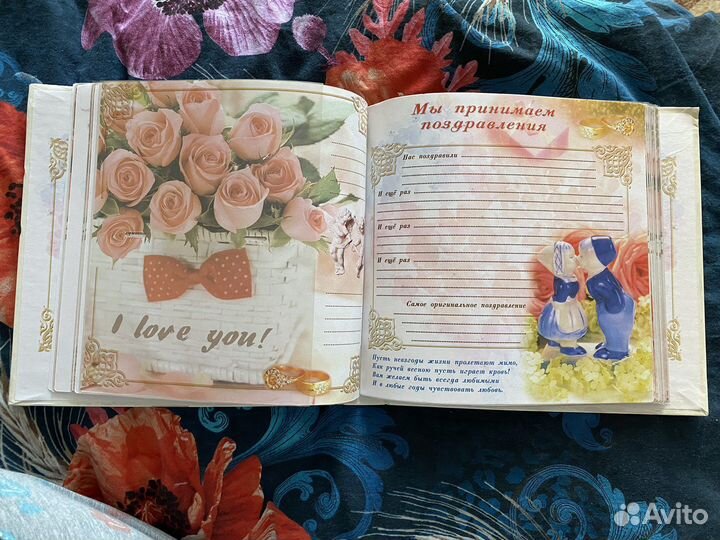 I love you!
Мы принимаем
поздравления
Нас поздравили
И ещё раз
И ещё раз
И ещё раз
Самое оригинальное поздравление
Пусть невзгоды жизни пролетают мимо,
Как ручей весною пусть играет кровь!
Вам желаем быть всегда любимыми
И в любые годы чувствовать любовь.
Avito